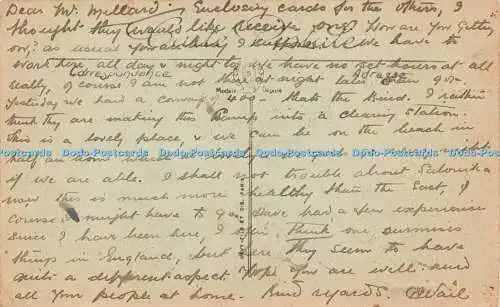 Dear Mr. Millard. Enclosing cards for the others, I
thought they would like receive one. How are you getting
on, as usual I suppose. We have to
work here all day & night, we have no set hours at all
Correspondence
Address
really, of course I am not here at night later than 9 or
Yesterday we had a convoy of 400 – thats the kind. I rather
think they are making this Camp into a clearing Station.
This is a lovely place & we can be on the beach in
half an hour
if we are able. I shall not trouble about Salonika
now this is much more healthy than the East, of
course I might have to go. Have had a few experiences
since I have been here, I often think one surmises
things in England, but here they seem to have
quite a different aspect. Hope you are well and
all your people at home. Kind regards.
Dodo-Postcards Dodo-Postcards Dodo-Postcards Dodo-Postcards Dodo-Postcards